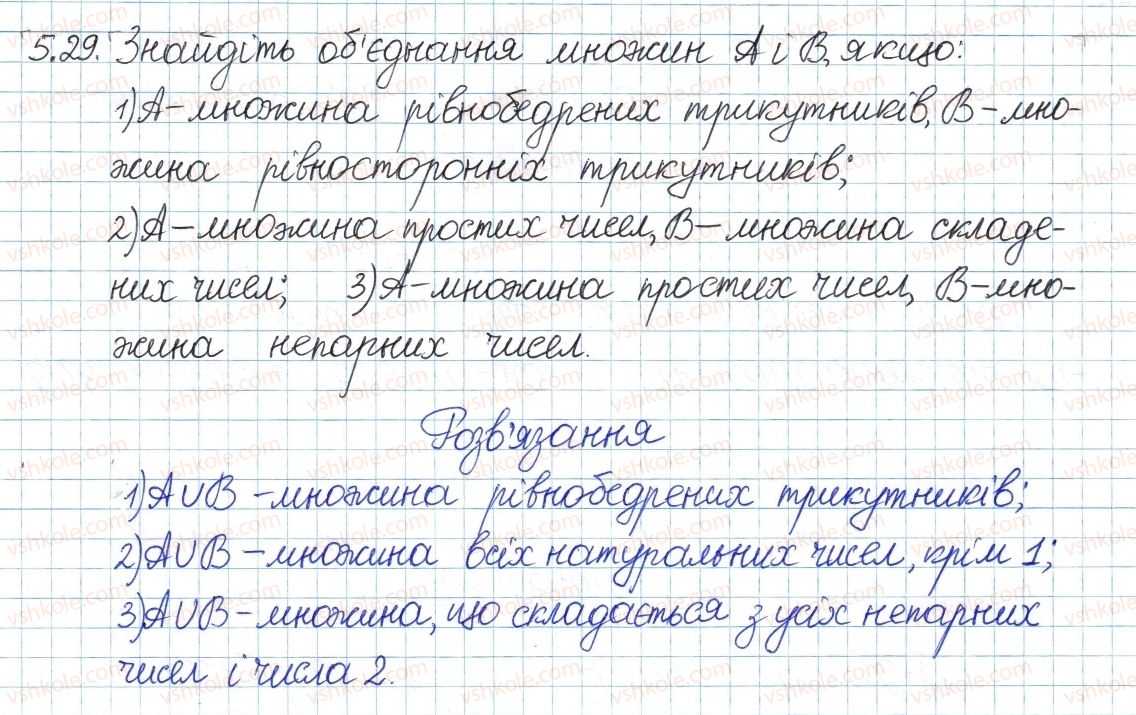 5.29. Знайдіть об'єднання множин А і В, якщо:
1) А – множина рівнобедрених трикутників, В – мно-
жина рівносторонніх трикутників;
2) А – множина простих чисел, В – множина складе-
них чисел; 3) А – множина простих чисел, В – мно-
жина непарних чисел.
Розв'язання
1) А∪В – множина рівнобедрених трикутників;
2) А∪В – множина всіх натуральних чисел, крім 1;
3) А∪В – множина, що складається з усіх непарних
чисел і числа 2.
vshkole.com